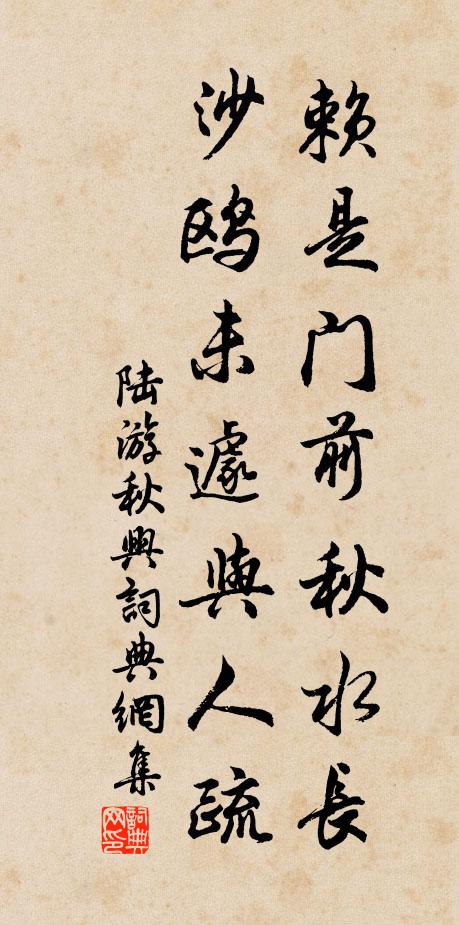 賴是門前秋水長
沙鷗未遽與人疏
陸游秋興詞典網集
詞典網印